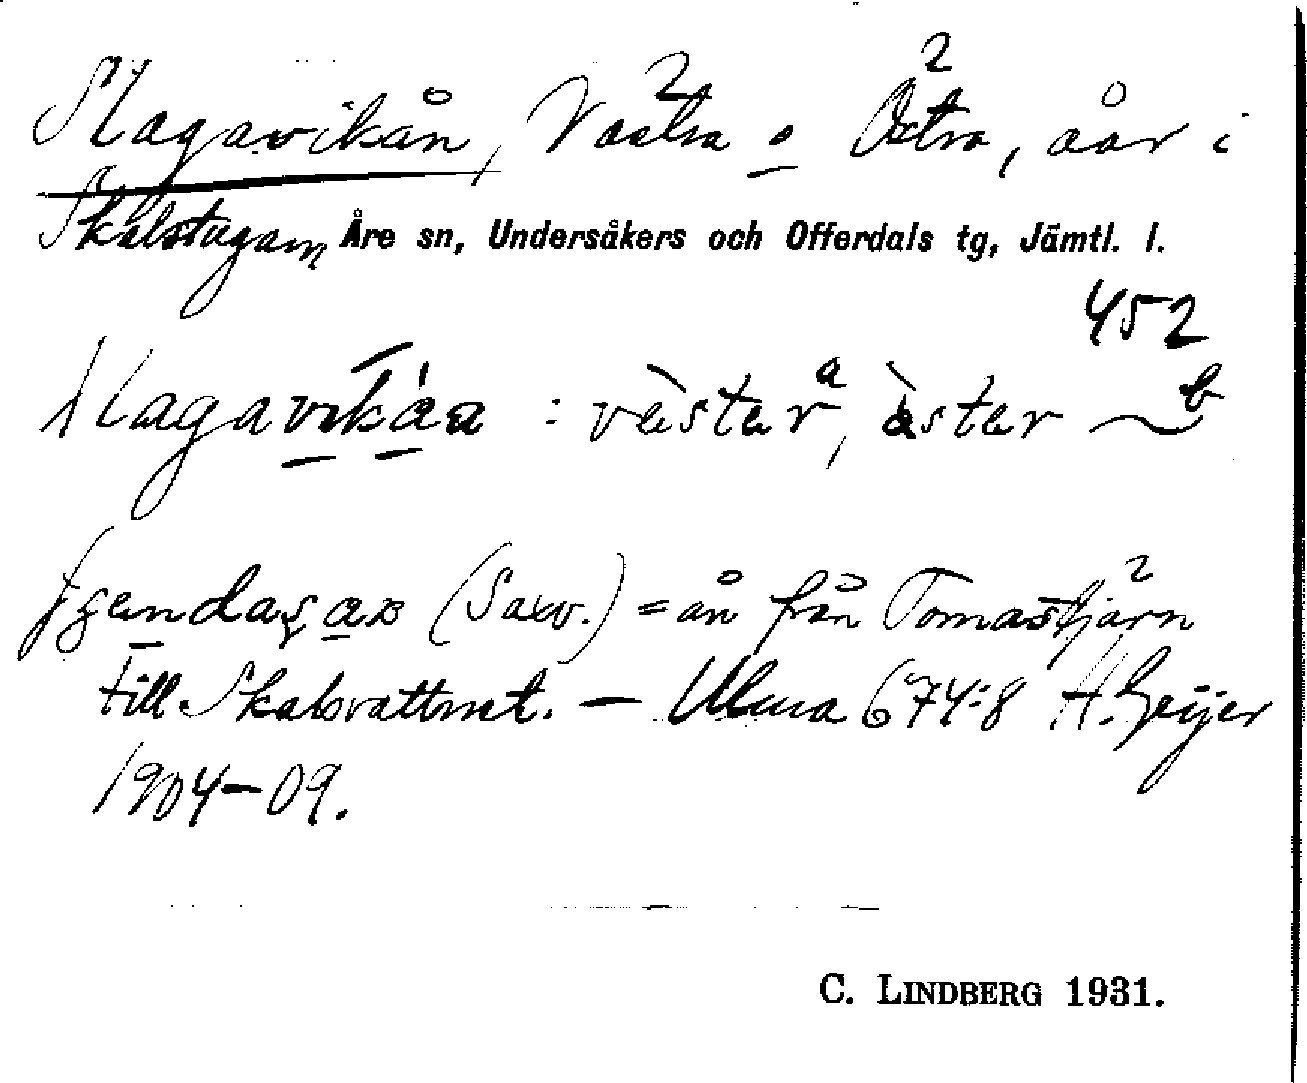 Slagavikån, Västra o Östra, åar i
Skalstugan, Åre sn, Undersåkers och Offerdals tg, Jämtl. l.
452
slagavikåa : vèster a, àster ~ b
(Saxv.) = ån från Tomastjärn
till Skalsvattnet. — Ulma 674:8 H. Geijer
1904–09.
C. LINDBERG 1931.